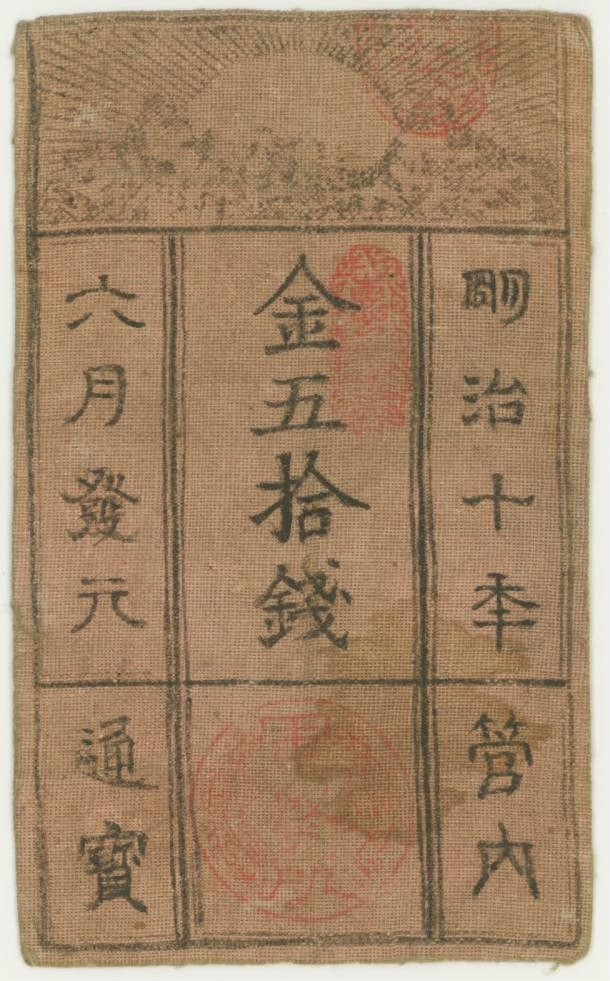 明治十年
管内
金五拾錢
六月發元
通寳